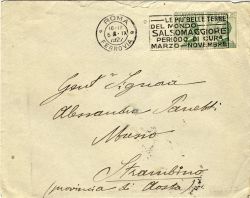 ROMA
FERROVIA
1927
LE PIÙ BELLE TERME
DEL MONDO
SALSOMAGGIORE
PERIODO DI CURA
MARZO - NOVEMBRE
Gent. Signora
Alessandra
Musso
Strambino
(provincia di Aosta)